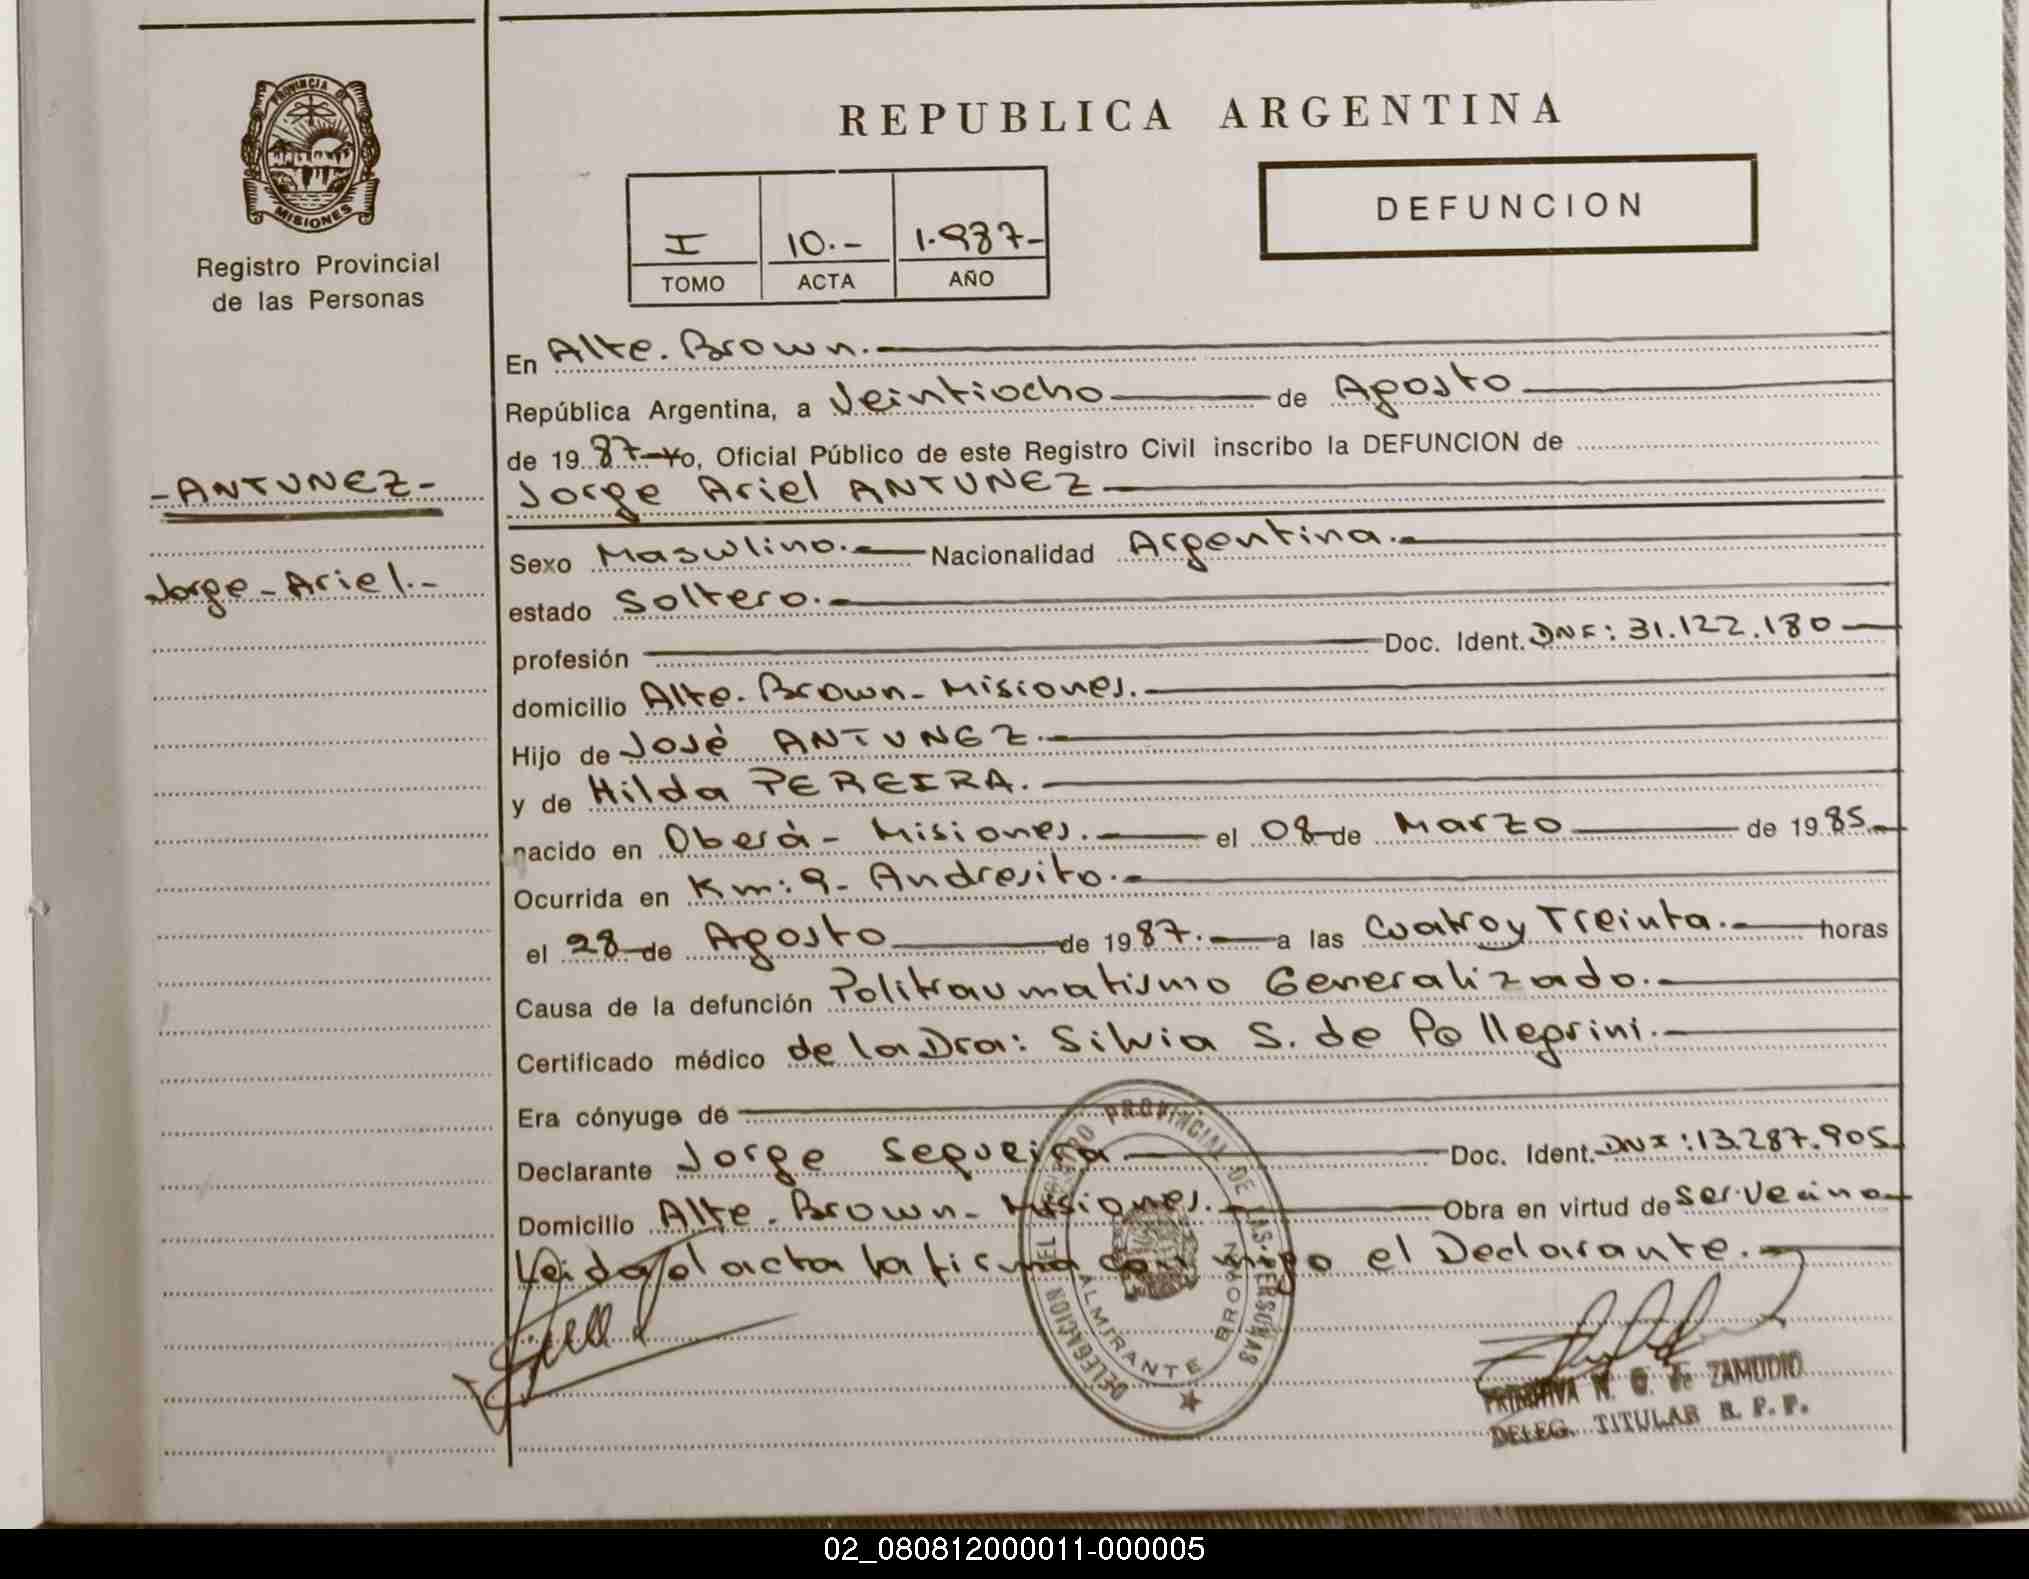 PROVINCIA DE
MISIONES
Registro Provincial
de las Personas
-ANTUNEZ-
Jorge-Ariel.-
REPUBLICA ARGENTINA
I 10.- 1.987-
TOMO ACTA AÑO
DEFUNCION
En Alte. Brown.
República Argentina, a Veintiocho de Agosto
de 1987- Yo, Oficial Público de este Registro Civil inscribo la DEFUNCION de
Jorge Ariel ANTUNEZ
Sexo Masculino.- Nacionalidad Argentina.-
estado Soltero.-
profesión Doc. Ident. DNI: 31.122.180
domicilio Alte. Brown- Misiones.-
Hijo de José ANTUNEZ.-
y de Hilda PEREIRA.
nacido en Oberá- Misiones. el 08 de Marzo de 1985.-
Ocurrida en Km: 9- Andresito.-
el 28 de Agosto de 1987.- a las Cuatro y Treinta. horas
Causa de la defunción Politraumatismo Generalizado.-
Certificado médico de la Dra: Silvia S. de Pellegrini.-
Era cónyuge de
Declarante Jorge Sequeira Doc. Ident. DNI: 13.287.905
Domicilio Alte. Brown- Misiones.- Obra en virtud de ser vecino
Leida el acta la firma conmigo el Declarante.-
DELEGACION DEL REGISTRO PROVINCIAL DE LAS PERSONAS
ALMIRANTE BROWN
PRIMITIVA N. G. de ZAMUDIO
DELEG. TITULAR R. P. P.
02_080812000011-000005